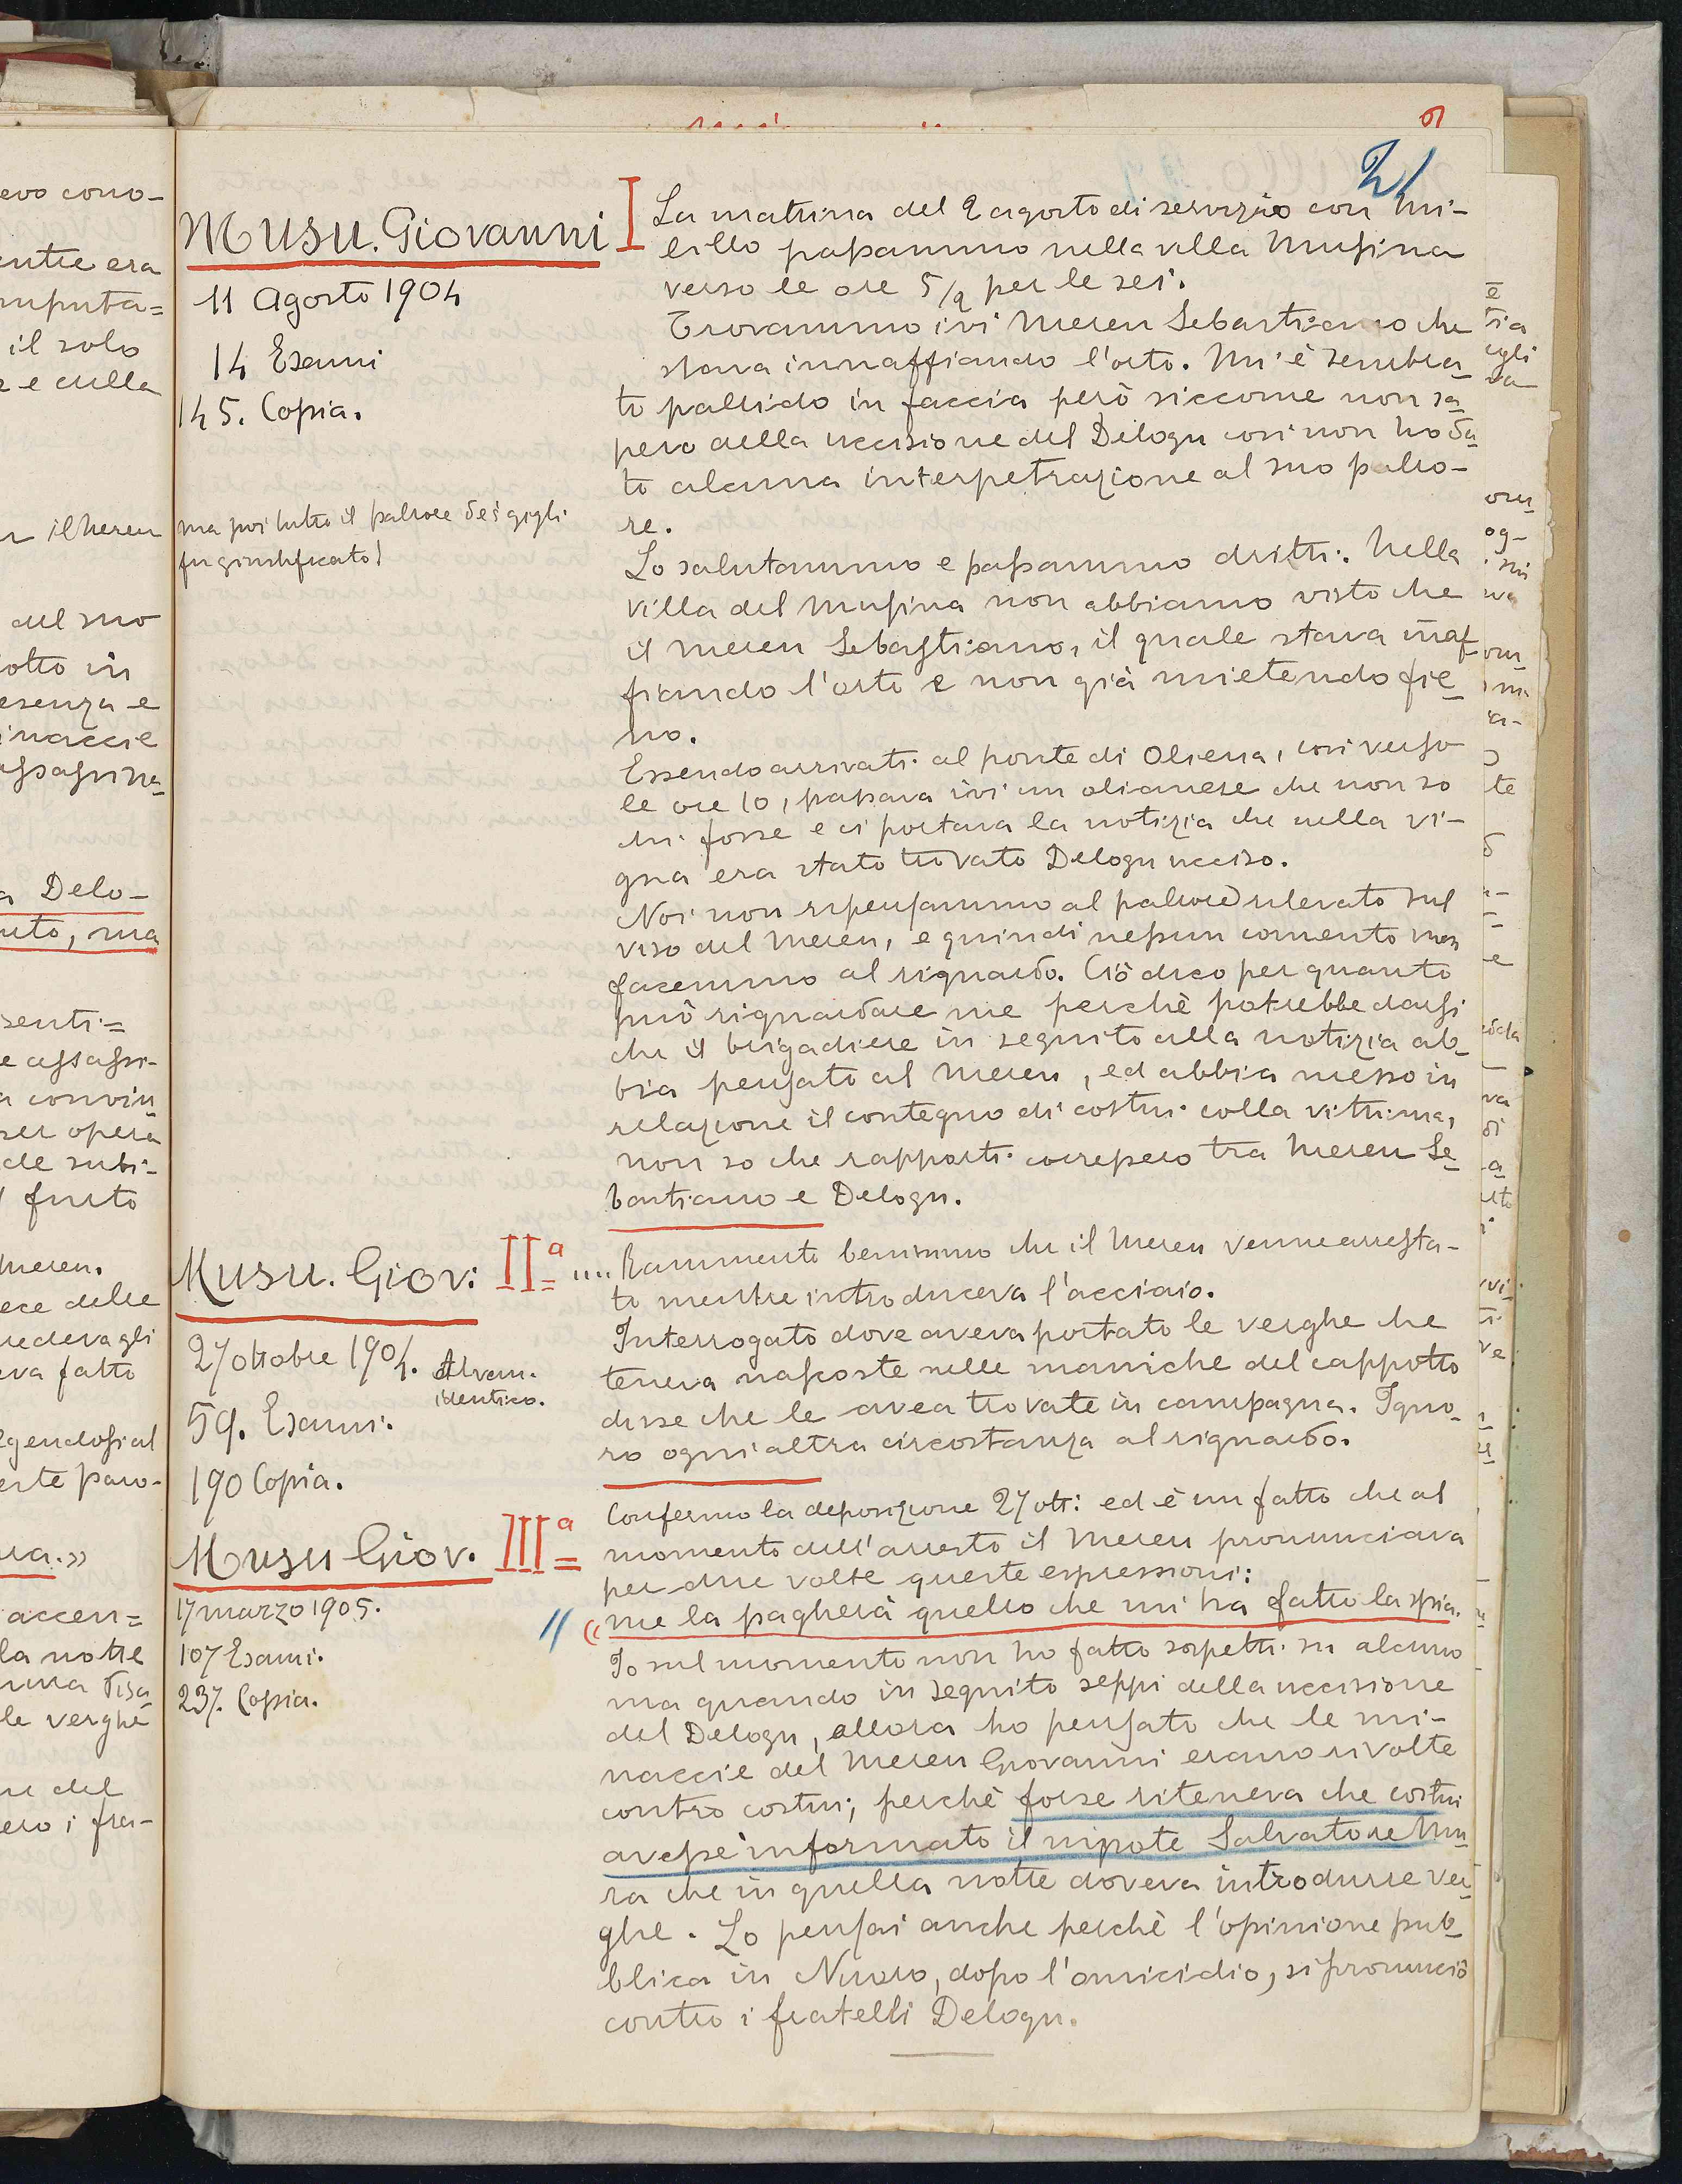 21
Musu. Giovanni I
11 Agosto 1904
14 Esami
145. Copia.
ma poi tutto il pallore dei gigli
fu giustificato!
La mattina del 2 agosto di servizio con Mi-
lillo passammo nella villa Musina
verso le ore 5/2 per le sei.
Trovammo ivi Mereu Sebastiano che
stava innaffiando l'orto. Mi è sembra-
to pallido in faccia però siccome non sa-
pevo della uccisione del Delogu così non ho da-
to alcuna interpetrazione al suo pallo-
re.
Lo salutammo e passammo dritti. Nella
villa del Musina non abbiamo visto che
il Mereu Sebastiano, il quale stava inaf-
fiando l'orto e non già mietendo fie-
no.
Essendo arrivati al ponte di Oliena, così verso
le ore 10, passava ivi un olianese che non so
chi fosse e ci portava la notizia che nella vi-
gna era stato trovato Delogu ucciso.
Noi non ripensammo al pallore rilevato sul
viso del Mereu, e quindi nessun comento non
facemmo al riguardo. Ciò dico per quanto
può riguardare me perchè potrebbe darsi
che il brigadiere in seguito alla notizia ab-
bia pensato al Mereu, ed abbia messo in
relazione il contegno di costui colla vittima,
non so che rapporti corressero tra Mereu Se-
bastiano e Delogu.
Musu. Giov: IIª
27 ottobre 1904.
identico.
59. Esami.
190 Copia.
.... Rammento benissimo che il Mereu venne arresta-
to mentre introduceva l'acciaio.
Interrogato dove aveva portato le verghe che
teneva nascoste nelle maniche del cappotto
disse che le avea trovate in campagna. Igno-
ro ogni altra circostanza al riguardo.
Musu Giov. IIIª
17 marzo 1905.
107 Esami.
237. Copia.
Confermo la deposizione 27 ott: ed è un fatto che al
momento dell'arresto il Mereu pronunciava
per due volte queste espressioni:
« me la pagherà quello che mi ha fatto la spia.
Io sul momento non ho fatto sospetti su alcuno
ma quando in seguito seppi della uccisione
del Delogu, allora ho pensato che le mi-
naccie del Mereu Giovanni erano rivolte
contro costui; perchè forse riteneva che costui
avesse informato il nipote Salvatore Mu-
ra che in quella notte doveva introdurre ver-
ghe. Lo pensai anche perchè l'opinione pub-
blica in Nuoro, dopo l'omicidio, si pronunciò
contro i fratelli Delogu.